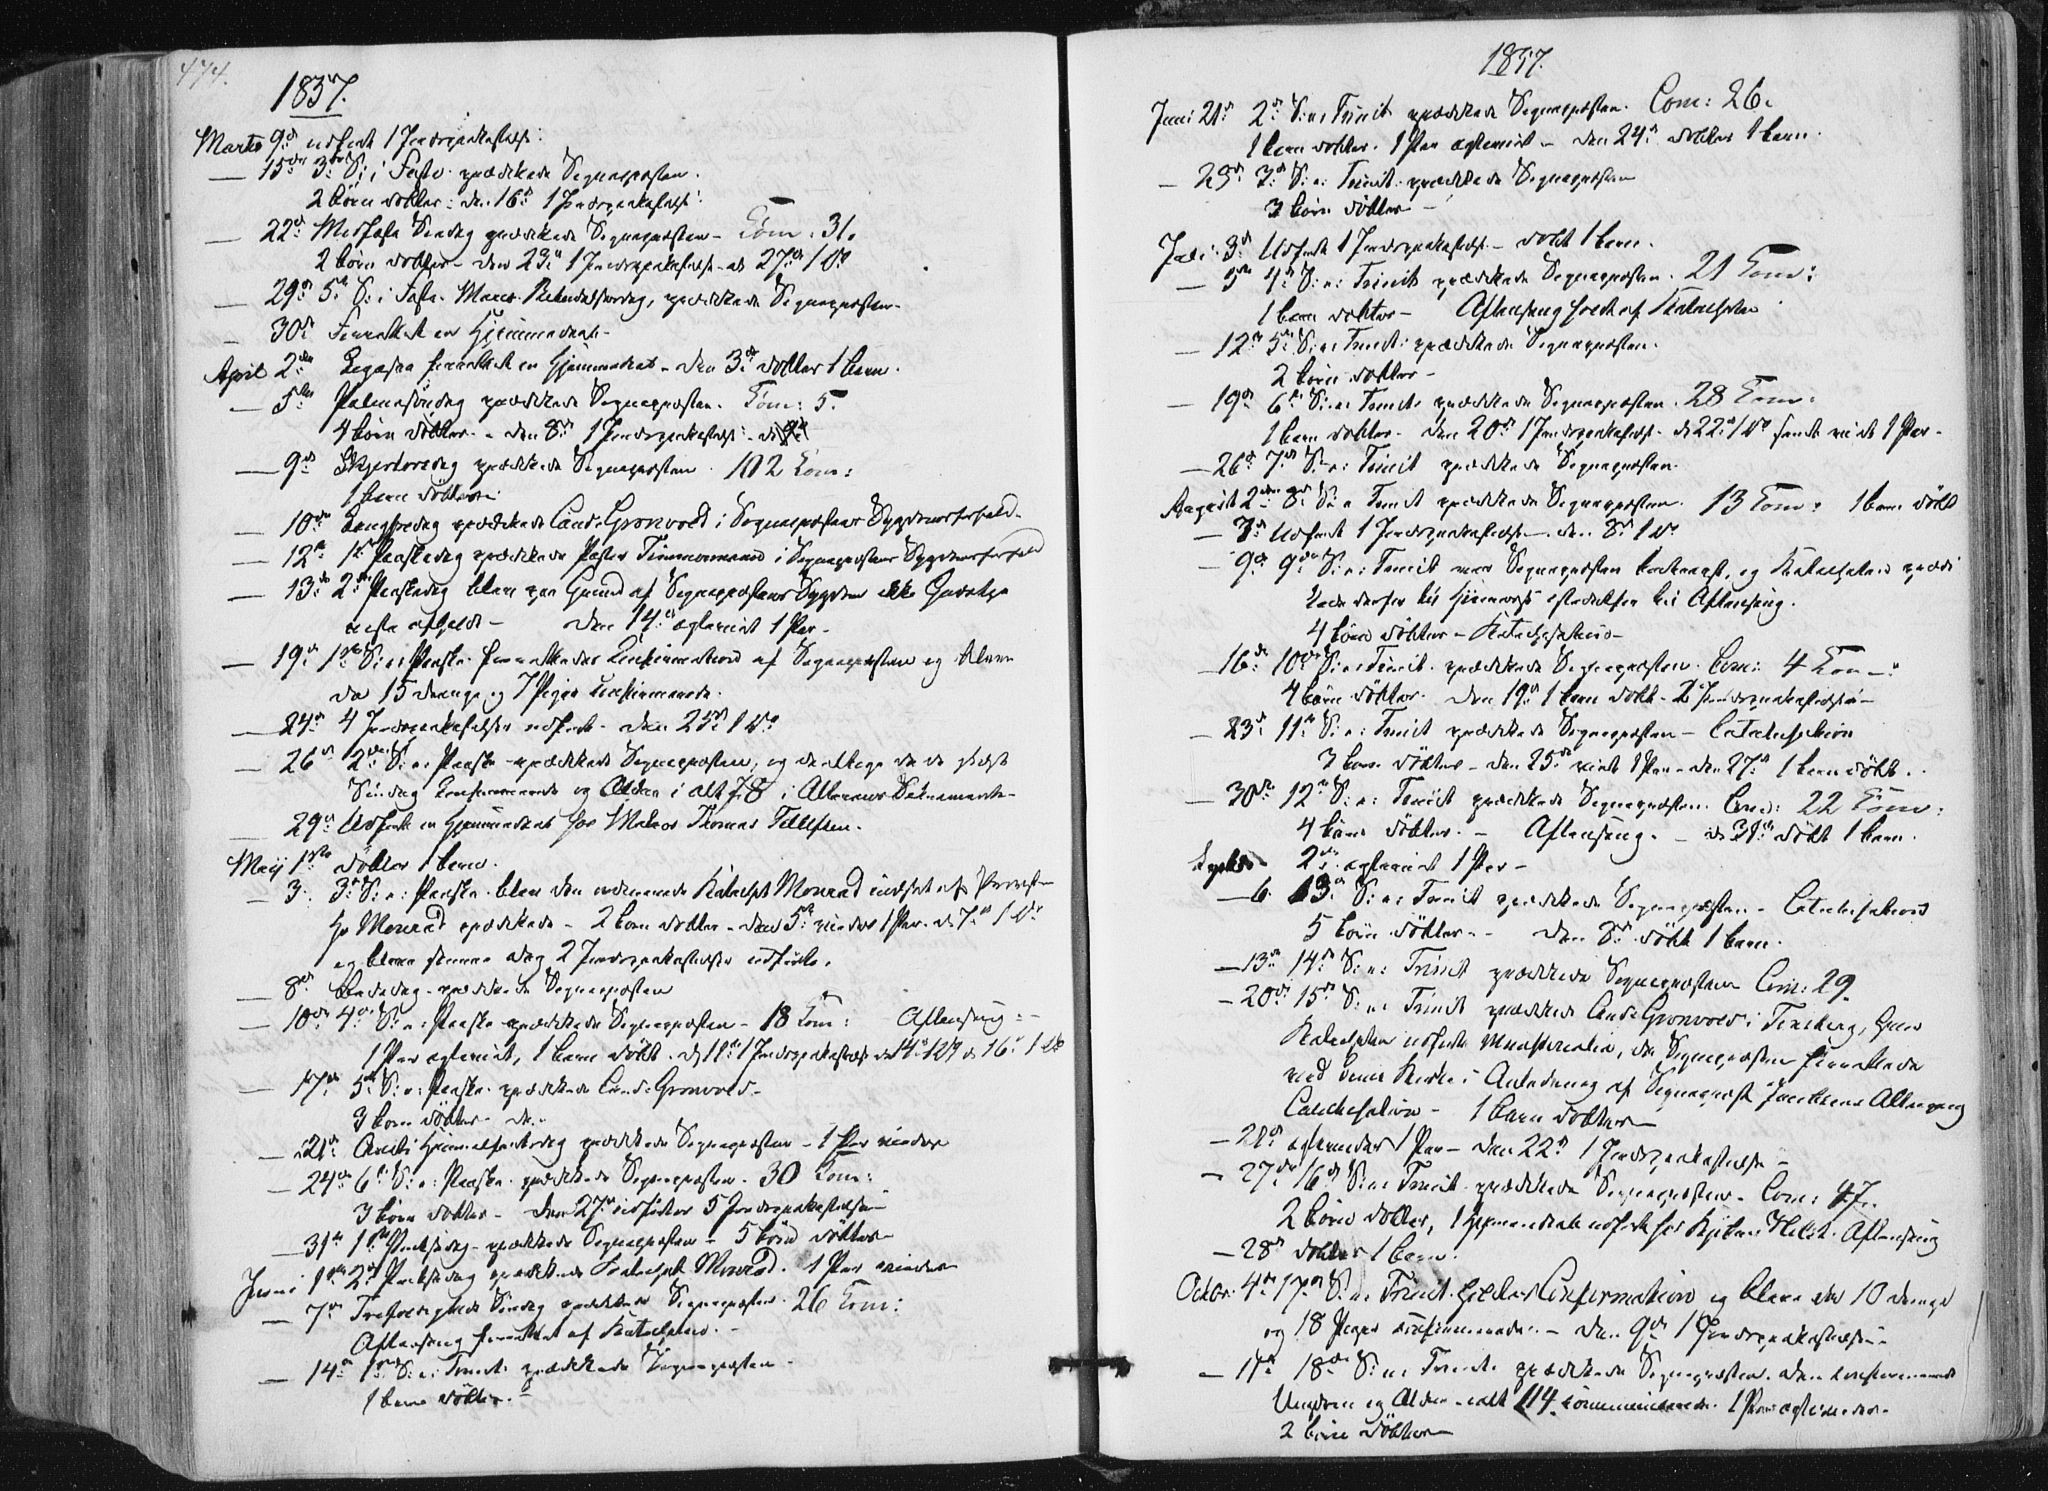 474.
1857.
Marts 9de udført 1 Jordspaakastelse:
— 15de 3die S: i Faste prædikede Sognepræsten.
2 börn döbtes: den 16de 1 Jordspaakastelse:
— 22de Midfaste Söndag prædikede Sognepræsten – Com: 31.
2 börn döbtes – den 23de 1 Jordspaakastelse – d. 27de 1 Do
— 29de 5te S: i Faste. Mariæ Bebudelsesdag, prædikede Sognepræsten –
— 30de Forrettet en Hjemmedaab –
April 2den Ligesaa forrettet en Hjemmedaab – den 3die döbtes 1 barn.
— 5te Palmesöndag prædikede Sognepræsten. Com: 5.
4 börn döbtes – den 8de 1 Jordspaakastelse –
— 9de Skjertorsdag prædikede Sognepræsten. 102 Com:
1 barn döbtes:
— 10de Langfredag prædikede Cand: Gronvold i Sognepræstens Sygdomsforfald –
— 12te 1ste Paaskedag prædikede Pastor Timmermand i Sognepræstens Sygdomsforfald
— 13de 2den Paaskedag blev paa Grund af Sognepræstens Sygdom ikke Gudstje
neste afholdt – den 14de ægteviet 1 Par –
— 19de 1ste S: e: Paaske forrettedes Confirmation af Sognepræsten og bleve
da 15 drenge og 7 Piger confirmerede.
— 24de 4 Jordspaakastelser udførte – den 25de 1 Do
— 26de 2den S: e: Paaske prædikede Sognepræsten, og deeltoge da de sidste
Söndag Confirmerede og Ældre i alt 78 i Alterens Sakramente –
— 29de Udført en Hjemmedaab for Thomas Tellefsen.
Maij 1ste döbtes 1 barn.
— 3. 3die S: e: Paaske blev den udnævnte Katechet Monrad indsat af Provsten
Hr Monrad prædikede – 2 börn döbtes – den 5te viedes 1 Par – d. 7de 1 Do
og bleve samme dag 2 Jordspaakastelser udførte.
— 8de Bededag prædikede Sognepræsten
— 10de 4de S: e: Paaske prædikede Sognepræsten – 18 Com: Aftensang: –
1 Par ægteviet, 1 barn döbt. d. 11te 1 Jordspaakastelse d. 16de 1 Do
— 17de 5te S: e: Paaske prædikede Cand: Gronvold –
3 börn döbtes –
— 21de Christi Himmelfartsdag prædikede Sognepræsten – 1 Par viedes
— 24de 6te S: e: Paaske prædikede Sognepræsten. 30 Com:
3 börn döbtes – den 27de udførtes 5 Jordspaakastelser
— 31te 1ste Pintsedag – prædikede Sognepræsten – 5 börn döbtes –
Juni 1ste 2den Pintsedag prædikede Katechet Monrad. 1 Par viedes
— 7de Trefoldigheds Söndag prædikede Sognepræsten. 26 Com:
Aftensang forrettet af Katecheten –
— 14de 1ste S: e: Trinit: prædikede Sognepræsten –
1 barn döbtes. –
1857.
Juni 21de 2den S: e: Trinit prædikede Sognepræsten. Com: 26.
1 barn döbtes. 1 Par ægteviet – den 24de döbtes 1 barn.
— 3die S: e: Trinit: prædikede Sognepræsten
3 börn döbtes –
Juli 3die Udført 1 Jordspaakastelse – döbt 1 barn.
— 5te 4de S: e: Trinit: prædikede Sognepræsten. 21 Com:
1 barn döbtes – Aftensang holdt af Katecheten
— 12te 5te S: e: Trinit: prædikede Sognepræsten.
2 börn döbtes –
— 19de 6te S: e: Trinit: prædikede Sognepræsten. 28 Com:
1 barn döbtes – den 20de 1 Jordspaakastelse – d. 22de 1 Do samt viet 1 Par –
— 26de 7de S: e: Trinit prædikede Sognepræsten.
August 2den 8de S: e Trinit prædikede Sognepræsten. 13 Com: 1 barn döbt
— 7de Udført 1 Jordspaakastelse – den 8de 1 Do
— 9de 9de S: e: Trinit var Sognepræsten og Katecheten prædi
kede derfor til Aftensang.
4 börn döbtes – Katechisation –
— 16de 10de S: e: Trinit. prædikede Sognepræsten. Com: 4 Com:
4 börn döbtes. den 19de 1 barn döbt – 2 Jordspaakastelser –
— 23de 11te S: e: Trinit prædikede Sognepræsten – Catechisation
3 börn döbtes – den 25de viet 1 Par – den 27de 1 barn döbt.
— 30te 12te S: e: Trinit prædikede Sognepræsten. Com: 22 Com:
4 börn döbtes. – Aftensang. – d. 31te döbt 1 barn.
Septbr 2den ægteviet 1 Par –
— 6. 13de S: e: Trinit prædikede Sognepræsten – Catechisation
5 börn döbtes – den 8de döbt 1 barn.
— 13de 14de S: e: Trinit prædikede Sognepræsten Com: 29.
— 20de 15de S: e: Trinit prædikede Cand: Gronvold i Tensberg, hvor
Katecheten udførte Ministerialia, da Sognepræsten forrettede
ved denne Kirke i Anledning af Sognepræst Altergang
Catechisation – 1 barn döbtes –
— 21de ægteviedes 1 Par – den 22de 1 Jordspaakastelse –
— 27de 16de S: e: Trinit prædikede Sognepræsten – Com: 47.
2 börn döbtes, 1 Hjemmedaab udført for Aftensang
— 28de döbtes 1 barn.
Octbr. 4de 17de S: e: Trinit. holdtes Confirmation og bleve da 10 drenge
og 18 Piger confirmerede. – den 9de 1 Jordspaakastelse –
— 11te 18de S: e: Trinit: prædikede Sognepræsten. den confirmerede
Ungdom og Ældre – ialt 114 communicerede. 1 Par ægteviedes.
2 börn döbtes –